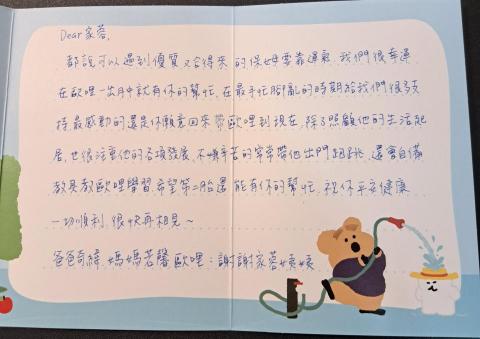 Dear家蓉,
都說可以遇到優質又合得來的保母要靠運氣,我們很幸運
在歐哩一出月中就有你的幫忙,在最手忙腳亂的時期給我們很多支
持,最感動的還是你願意回來帶歐哩到現在,除了照顧他的生活起
居,也很注重他的各項發展,不嫌辛苦的常常帶他出門跑跳,還會自備
教具教歐哩學習,希望第二胎還能有你的幫忙,祝你平安健康
一切順利,很快再相見~
爸爸奇緯 媽媽若馨 歐哩:謝謝家蓉姨姨